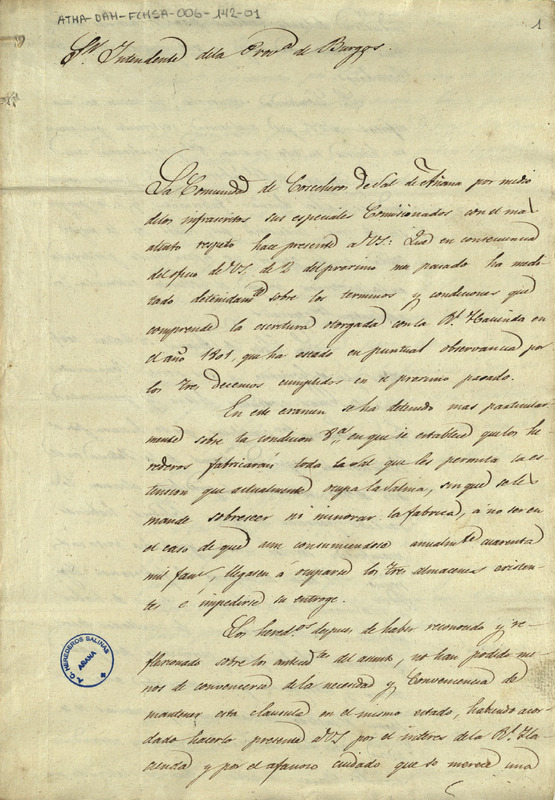 ATHA-DAH-FCHSA-006-142-01
1
Sr. Intendente de la Prova de Burgos.
La Comunidad de Cosecheros de Sal de Añana por medio
de los infrascritos sus especiales Comisionados con el mas
atento respeto hace presente a VS: Que en consecuencia
del oficio de VS. de 2 del procsimo mes pasado ha medi-
tado detenidamte sobre los terminos y condiciones que
comprende la escritura otorgada con la Rl. Hacienda en
el año 1801, que ha estado en puntual observancia por
los tres decenios cumplidos en el procsimo pasado.
En este examen se ha detenido mas particular
mente sobre la condicion 8a. en que se establece que los he
rederos fabricarán toda la sal que les permita la es-
tension que actualmente ocupa la Salina, sin que se les
mande sobreseer ni minorar la fabrica, á no ser en
el caso de que aun consumiendose anualmte cuarenta
mil fans, llegasen á ocuparse los tres almacenes existen-
tes é impedirse su entroge.
Los hereds. despues de haber reconocido y re-
flecsionado sobre los anteceds. del asunto, no han podido me-
nos de convencerse de la necesidad y conveniencia de
mantener esta clausula en el mismo estado, habiendo acor-
dado hacerlo presente a VS por el interes de la Rl. Ha-
cienda y por el afanoso cuidado que se merece una
A.C. HEREDEROS SALINAS
AÑANA